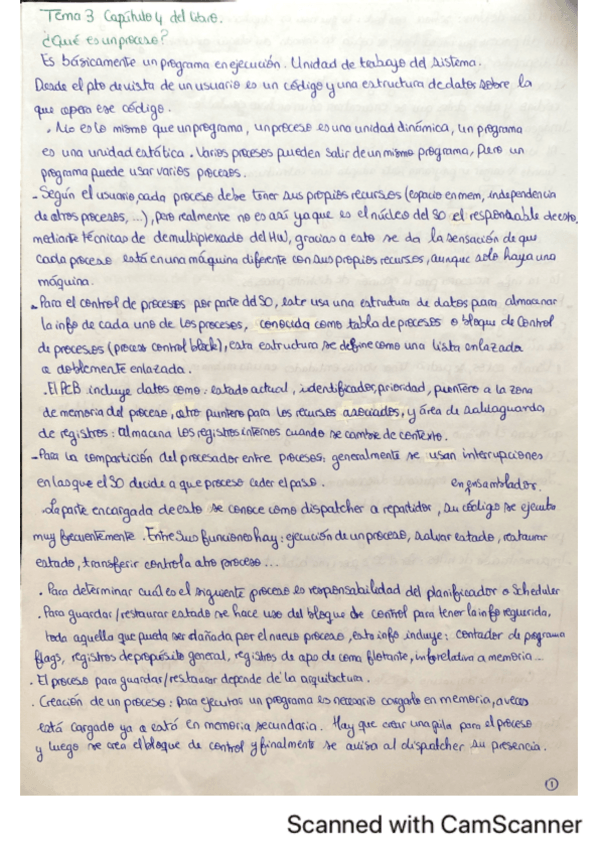 Tema 3 Capítulo 4 del libro.
¿Qué es un proceso?
Es básicamente un programa en ejecución. Unidad de trabajo del sistema.
Desde el pto de vista de un usuario es un código y una estructura de datos sobre la
que opera ese código.
. No es lo mismo que un programa, un proceso es una unidad dinámica, un programa
es una unidad estática. Varios procesos pueden salir de un mismo programa, pero un
programa puede usar varios procesos.
- Según el usuario, cada proceso debe tener sus propios recursos (espacio en mem, independencia
de otros procesos, ...), pero realmente no es así ya que es el núcleo del SO el responsable de esto,
mediante técnicas de demultiplexado del HW, gracias a esto se da la sensación de que
cada proceso está en una máquina diferente con sus propios recursos, aunque solo haya una
máquina.
- Para el control de procesos por parte del SO, este usa una estrutura de datos para almacenar
la info de cada uno de los procesos, conocida como tabla de procesos o bloque de control
de procesos (process control block), esta estructura se define como una lista enlazada
o doblemente enlazada.
. El PCB incluye datos como: estado actual, identificador, prioridad, puntero a la zona
de memoria del proceso, otro puntero para los recursos asociados, y área de salvaguarda
de registros: almacena los registros internos cuando se cambie de contexto.
- Para la compartición del procesador entre procesos: generalmente se usan interrupciones
en las que el SO decide a que proceso ceder el paso. en ensamblador.
. La parte encargada de esto se conoce como dispatcher o repartidor, su código se ejecuta
muy frecuentemente. Entre sus funciones hay: ejecución de un proceso, salvar estado, restaurar
estado, transferir control a otro proceso...
. Para determinar cual es el siguiente proceso es responsabilidad del planificador o Scheduler
. Para guardar/restaurar estado se hace uso del bloque de control para tener la info requerida,
toda aquella que pueda ser dañada por el nuevo proceso, esta info incluye: contador de programa
flags, registros de propósito general, registros de apo de coma flotante, info relativa a memoria...
. El proceso para guardar/restaurar depende de la arquitectura.
. Creación de un proceso: Para ejecutar un programa es necesario cargarlo en memoria, a veces
está cargado ya o está en memoria secundaria. Hay que crear una pila para el proceso
y luego se crea el bloque de control y finalmente se avisa al dispatcher su presencia.
1
Scanned with CamScanner